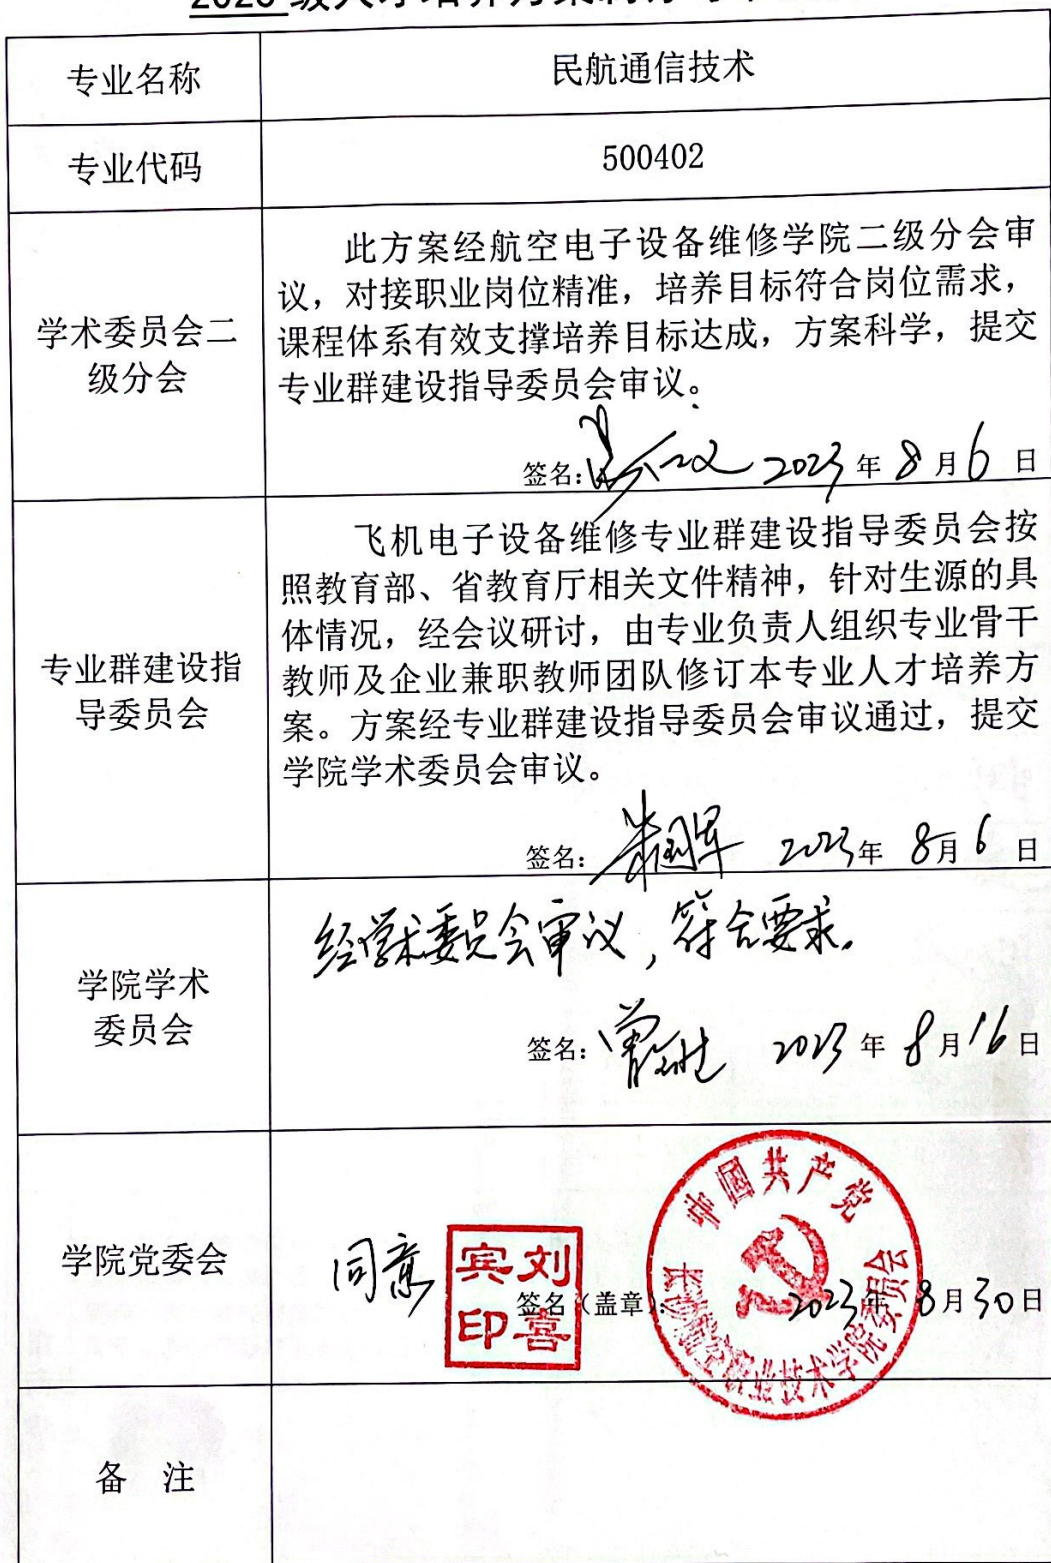 级人才培养方案制
专业名称
民航通信技术
专业代码
500402
学术委员会二
级分会
此方案经航空电子设备维修学院二级分会审
议，对接职业岗位精准，培养目标符合岗位需求，
课程体系有效支撑培养目标达成，方案科学，提交
专业群建设指导委员会审议。
签名： 2023年8月6日
专业群建设指
导委员会
飞机电子设备维修专业群建设指导委员会按
照教育部、省教育厅相关文件精神，针对生源的具
体情况，经会议研讨，由专业负责人组织专业骨干
教师及企业兼职教师团队修订本专业人才培养方
案。方案经专业群建设指导委员会审议通过，提交
学院学术委员会审议。
签名： 2023年8月6日
学院学术
委员会
经学术委员会审议，符合要求。
签名： 2023年8月16日
学院党委会
同意
刘喜宾印
签名（盖章）： 2023年8月30日
中國共产党
航空职业技术学院委员会
备 注